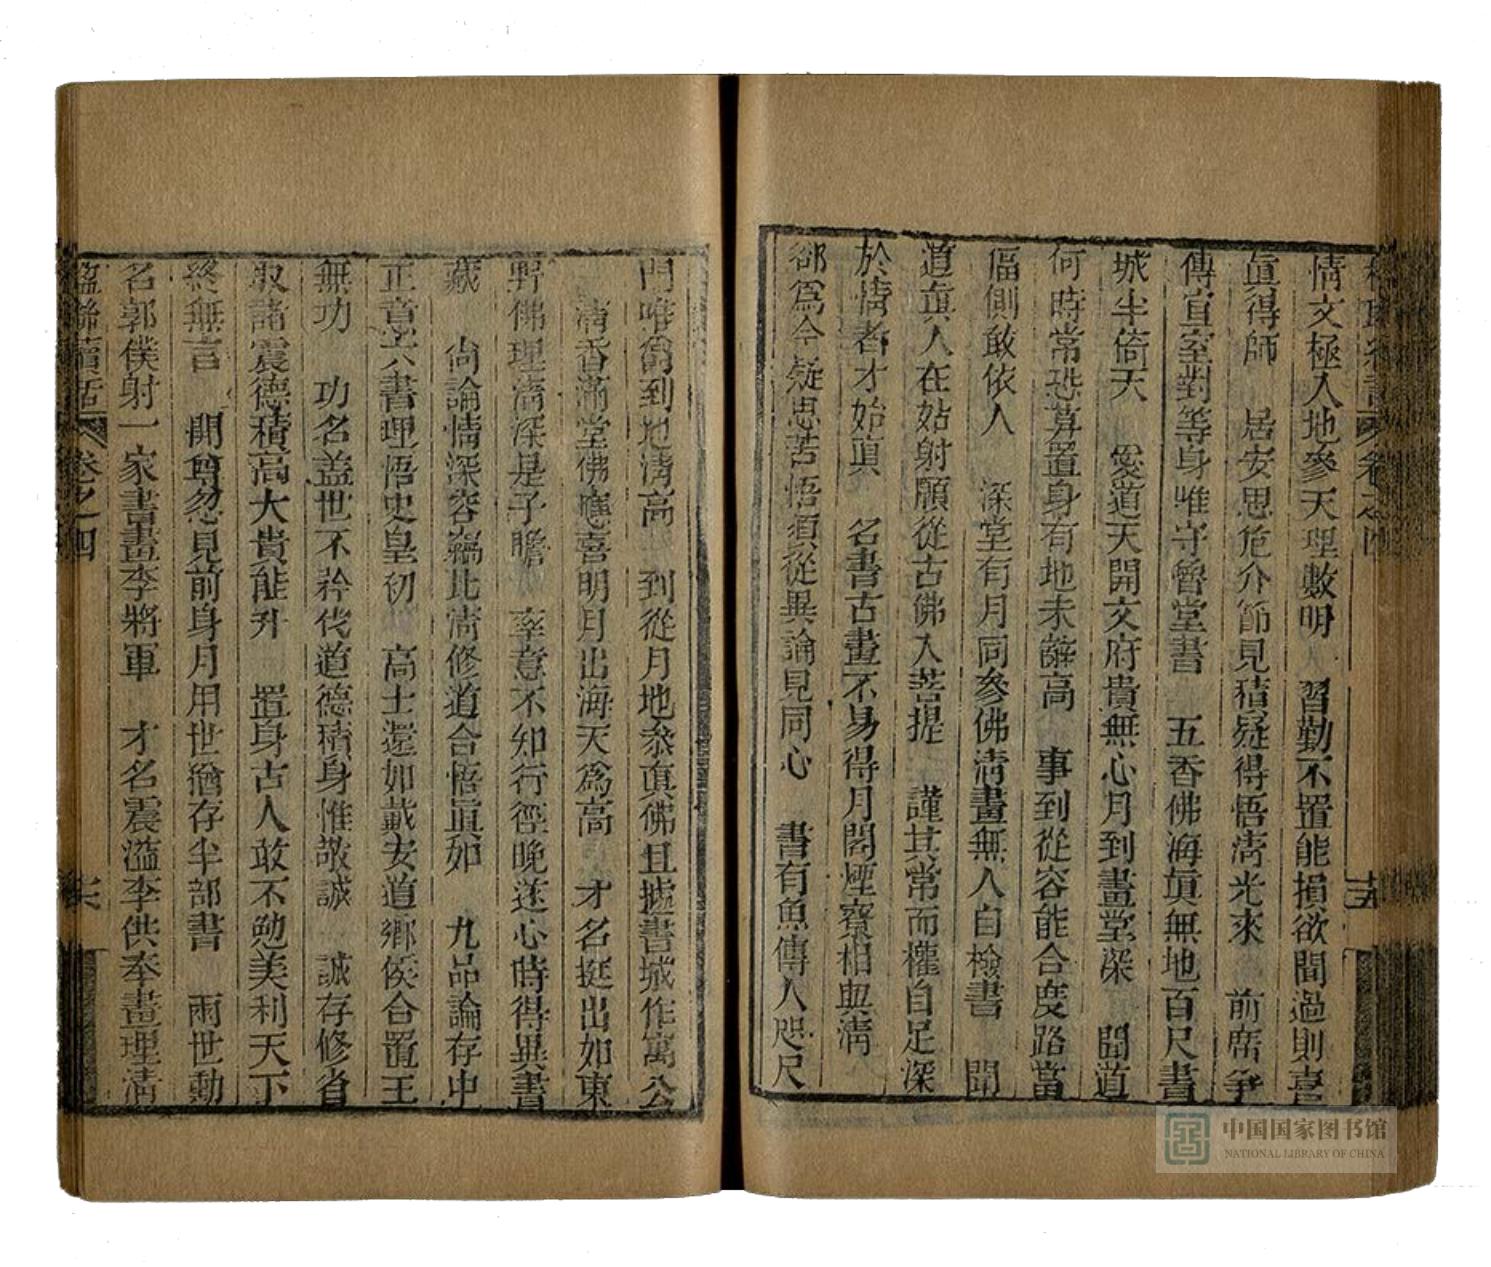 楹聯續話 卷之四 十五
情文極人地參天理數明 習勤不置能損欲聞過則喜
眞得師 居安思危介節見積疑得悟淸光來 前席爭
傳宣室對等身唯守魯堂書 五香佛海眞無地百尺書
城半倚天 愛道天開文府貴無心月到畫堂深 聞道
何時常恐算置身有地未辭高 事到從容能合度路當
偪側敢依人 深堂有月同參佛淸晝無人自檢書 聞
道眞人在姑射願從古佛入菩提 謹其常而權自足深
於情者才始眞 名書古畫不易得月閣煙寮相與淸
卻爲今疑思苦悟須從異論見同心 書有魚傳人咫尺
門唯雀到地淸高 到從月地參眞佛且據書城作寓公
淸香滿堂佛應喜明月出海天爲高 才名挺出如東
野佛理淸深是子瞻 率意不知行徑晚遂心時得異書
藏 尙論情深容竊比淸修道合悟眞如 九品論存中
正意六書理悟史皇初 高士還如戴安道鄉侯合置王
無功 功名盖世不矜伐道德積身惟敬誠 誠存修省
取諸震德積高大貴能升 置身古人敢不勉美利天下
終無言 開尊忽見前身月用世猶存半部書 兩世勳
名郭僕射一家書畫李將軍 才名震溢李供奉畫理淸
楹聯續話 卷之四 十六
中国国家图书馆
NATIONAL LIBRARY OF CHINA